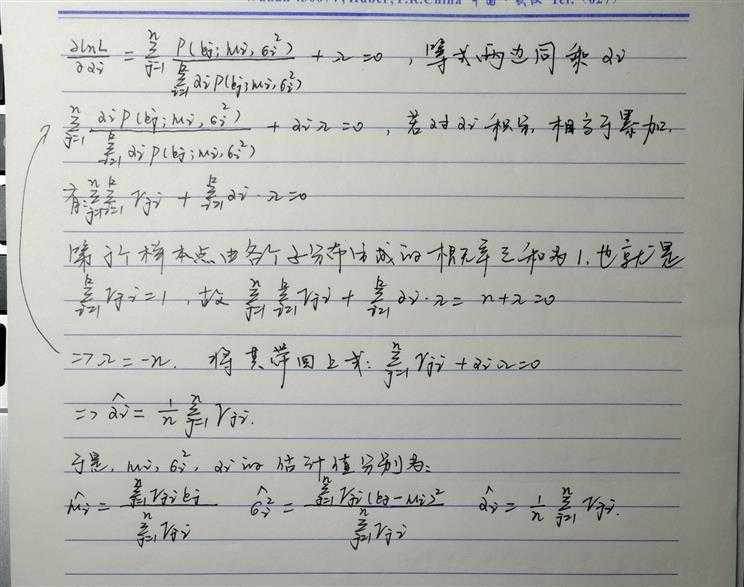 ∂lnL/∂αi = Σ_{j=1}^{n} P(yj; μi, σi²) / Σ_{i=1}^{k} αi P(yj; μi, σi²) + λ = 0 , 等式两边同乘 αi
Σ_{j=1}^{n} αi P(yj; μi, σi²) / Σ_{i=1}^{k} αi P(yj; μi, σi²) + αi λ = 0 , 若对 αi 积分, 相当于累加.
有: Σ_{j=1}^{n} Σ_{i=1}^{k} γji + Σ_{i=1}^{k} αi · λ = 0
第 j 个样本点由各个子分布生成的概率之和为 1. 也就是
Σ_{i=1}^{k} γji = 1 , 故 Σ_{j=1}^{n} Σ_{i=1}^{k} γji + Σ_{i=1}^{k} αi · λ = n + λ = 0
=> λ = -n. 将其带回上式: Σ_{j=1}^{n} γji + αi λ = 0
=> α̂i = 1/n Σ_{j=1}^{n} γji.
于是, μi, σi², αi 的估计值分别为:
μ̂i = Σ_{j=1}^{n} γji yj / Σ_{j=1}^{n} γji σ̂i² = Σ_{j=1}^{n} γji (yj - μi)² / Σ_{j=1}^{n} γji α̂i = 1/n Σ_{j=1}^{n} γji.